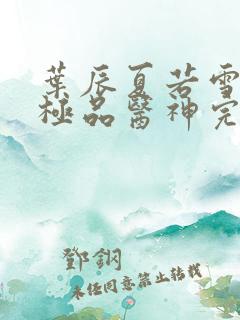 葉辰夏若雪
極品醫神完
鄧鋼
未經同意禁止轉載